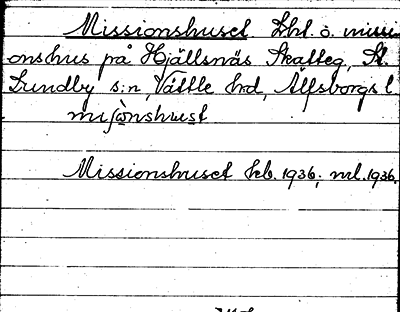 Missionshuset Lht. o. missi-
onshus på Hjällsnäs Skatteg, St.
Lundby s:n, Vättle hrd, Älfsborgs l.
misònshust
Missionshuset kb. 1936; ml. 1936.